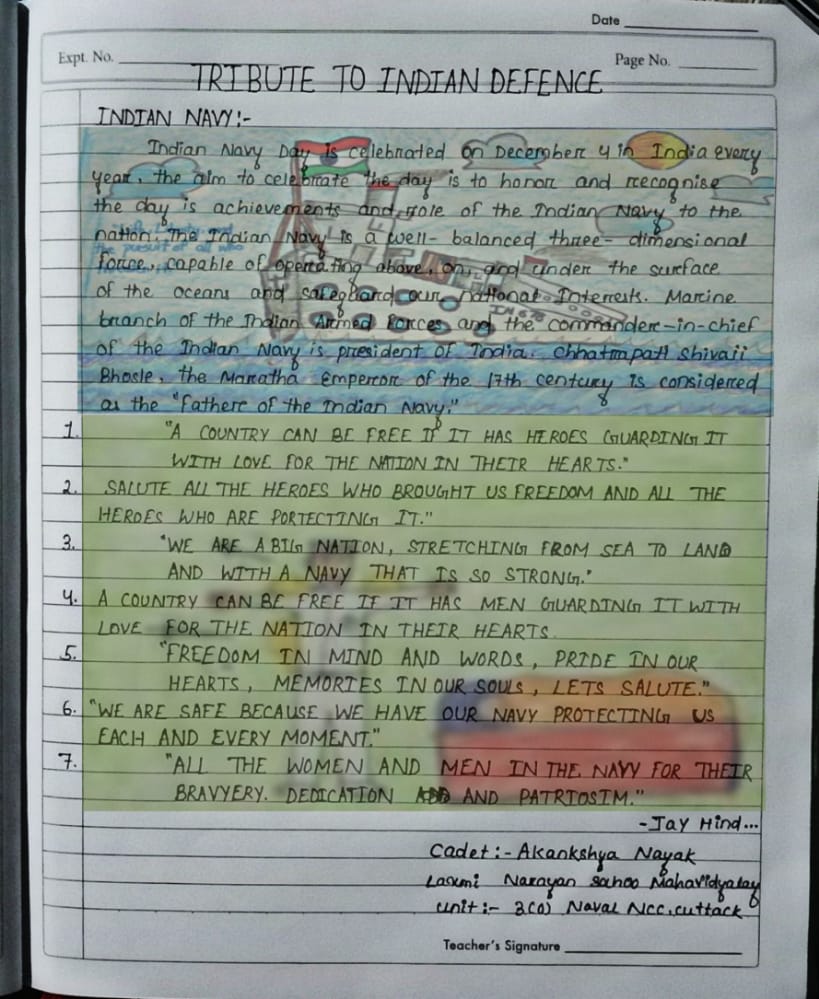 Date
Expt. No.
Page No.
TRIBUTE TO INDIAN DEFENCE
INDIAN NAVY:-
Indian Navy Day is celebrated on December 4 in India every
year, the aim to celebrate the day is to honor and recognise
the day is achievements and role of the Indian Navy to the
nation. The Indian Navy is a well- balanced three- dimensional
force, capable of operating above, on, and under the surface
of the oceans and safeguard our national Interrests. Marine
branch of the Indian Armed Forces and the commander-in-chief
of the Indian Navy is president of India. Chhatrapati Shivaji
Bhosle, the Maratha Emperor of the 17th century is considered
as the "Father of the Indian Navy."
1. "A COUNTRY CAN BE FREE IF IT HAS HEROES GUARDING IT
WITH LOVE FOR THE NATION IN THEIR HEARTS."
2. SALUTE ALL THE HEROES WHO BROUGHT US FREEDOM AND ALL THE
HEROES WHO ARE PORTECTING IT."
3. "WE ARE A BIG NATION, STRETCHING FROM SEA TO LAND
AND WITH A NAVY THAT IS SO STRONG."
4. A COUNTRY CAN BE FREE IF IT HAS MEN GUARDING IT WITH
LOVE FOR THE NATION IN THEIR HEARTS.
5. "FREEDOM IN MIND AND WORDS, PRIDE IN OUR
HEARTS, MEMORIES IN OUR SOULS, LETS SALUTE."
6. "WE ARE SAFE BECAUSE WE HAVE OUR NAVY PROTECTING US
EACH AND EVERY MOMENT."
7. "ALL THE WOMEN AND MEN IN THE NAVY FOR THEIR
BRAVYERY. DEDICATION AND PATRIOSIM."
-Jay Hind...
Cadet:- Akankshya Nayak
Laxmi Narayan Sahoo Mahavidyalay
Unit:- 3(O) Naval NCC, cuttack
Teacher's Signature